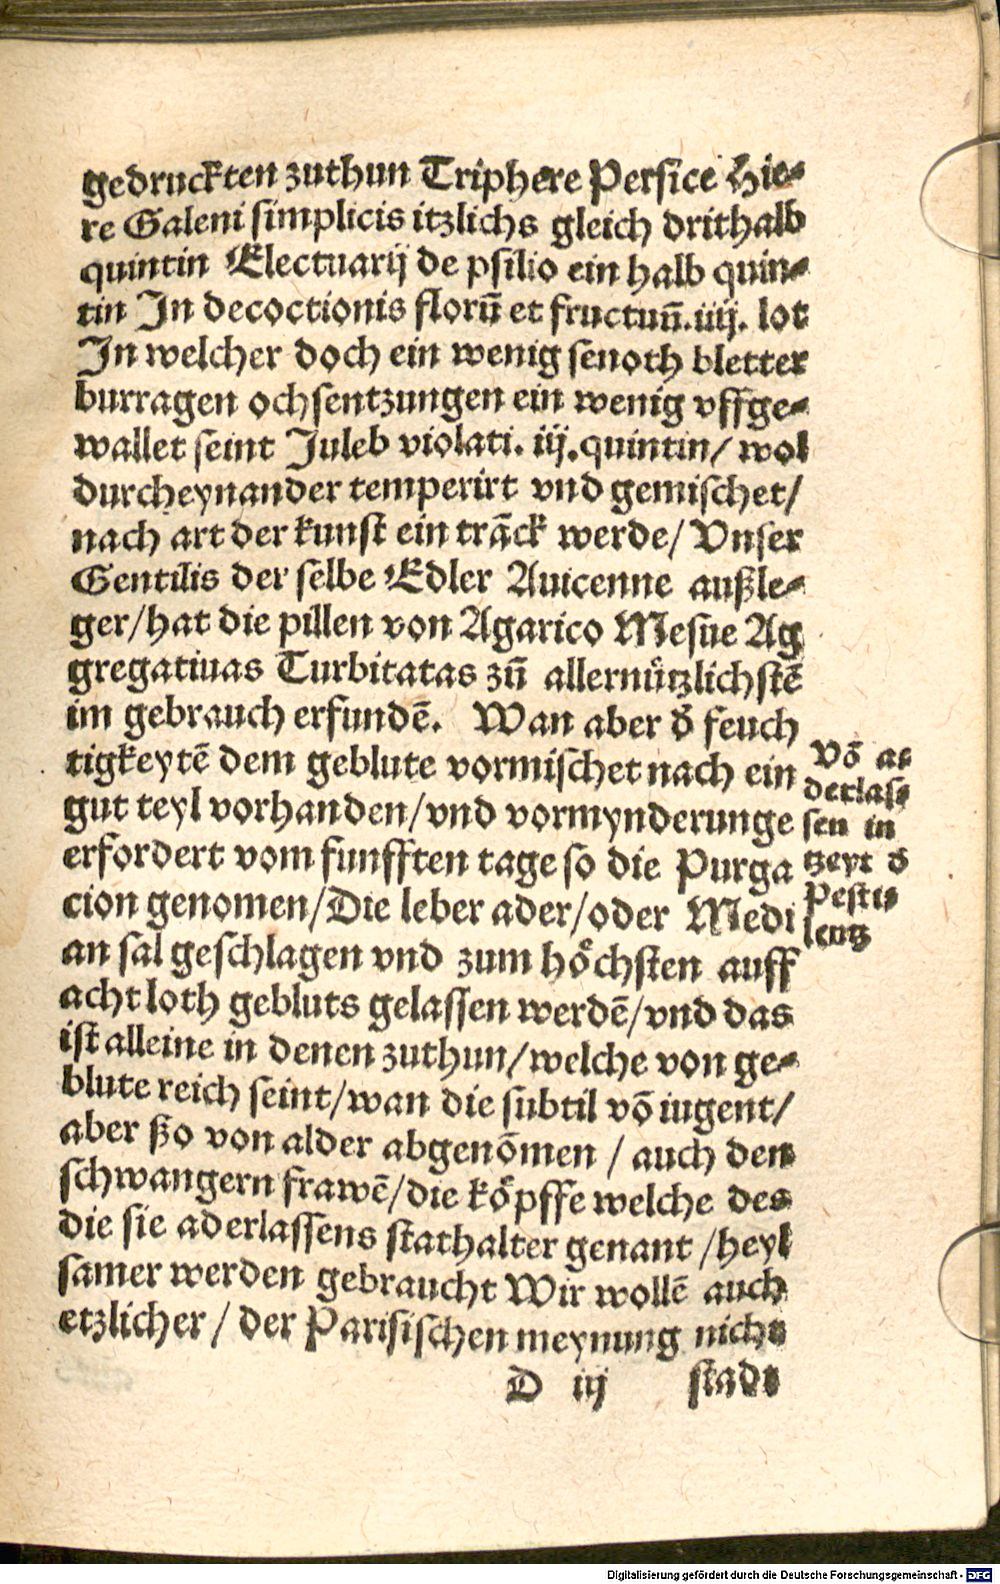 gedruckten zuthun Triphere Persice Hie-
re Galeni simplicis itzlichs gleich drithalb
quintin Electuarij de psilio ein halb quin-
tin In decoctionis florū et fructuū. iiij. lot
In welcher doch ein wenig senoth bletter
burragen ochsentzungen ein wenig vffge-
wallet seint Juleb violati. iij. quintin/ wol
durcheynander temperirt vnd gemischet/
nach art der kunst ein trāck werde/ Vnser
Gentilis der selbe Edler Auicenne außle-
ger/hat die pillen von Agarico Mesue Ag
gregatiuas Turbitatas zū allernützlichstē
im gebrauch erfundē. Wan aber d̄ feuch
tigkeytē dem geblute vormischet nach ein
gut teyl vorhanden/vnd vormynderunge
erfordert vom funfften tage so die Purga
cion genomen/Die leber ader/oder Medi
an sal geschlagen vnd zum höchsten auff
acht loth gebluts gelassen werdē/vnd das
ist alleine in denen zuthun/welche von ge-
blute reich seint/wan die subtil vō iugent/
aber ßo von alder abgenōmen / auch den
schwangern frawē/die köpffe welche des
die sie aderlassens stathalter genant /heyl
samer werden gebraucht Wir wollē auch
etzlicher / der Parisischen meynung nicht
D iij stadt
Vō a-
derlas-
sen in
tzeyt d̄
Pesti-
lentz
Digitalisierung gefördert durch die Deutsche Forschungsgemeinschaft - DFG